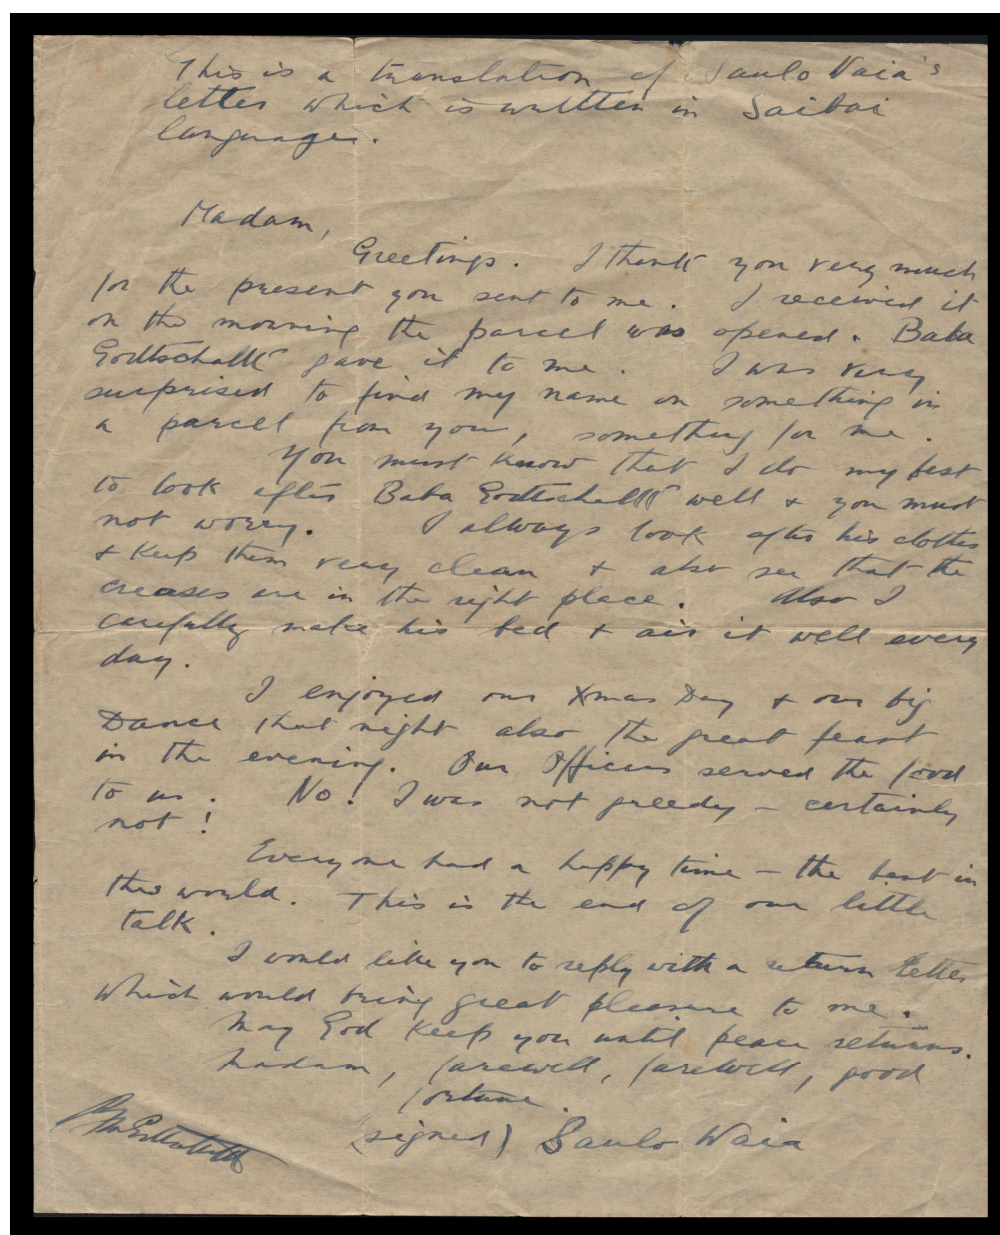 This is a translation of Saulo Waia's
letter which is written in Saibai
languages.
Madam,
Greetings. I thank you very much
for the present you sent to me. I received it
on the morning the parcel was opened. Baba
Godtschalk gave it to me. I was very
surprised to find my name on something in
a parcel from you, something for me.
You must know that I do my best
to look after Baba Godtschalk well & you must
not worry. I always look after his clothes
& keep them very clean & also see that the
creases are in the right place. Also I
carefully make his bed & air it well every
day.
I enjoyed our Xmas Day & our big
Dance that night also the great feast
in the evening. Our Officers served the food
to us. No! I was not greedy - certainly
not!
Everyone had a happy time - the best in
the world. This is the end of our little
talk.
I would like you to reply with a return letter
which would bring great pleasure to me.
May God keep you until peace returns.
Madam, farewell, farewell, good
fortune.
(signed) Saulo Waia